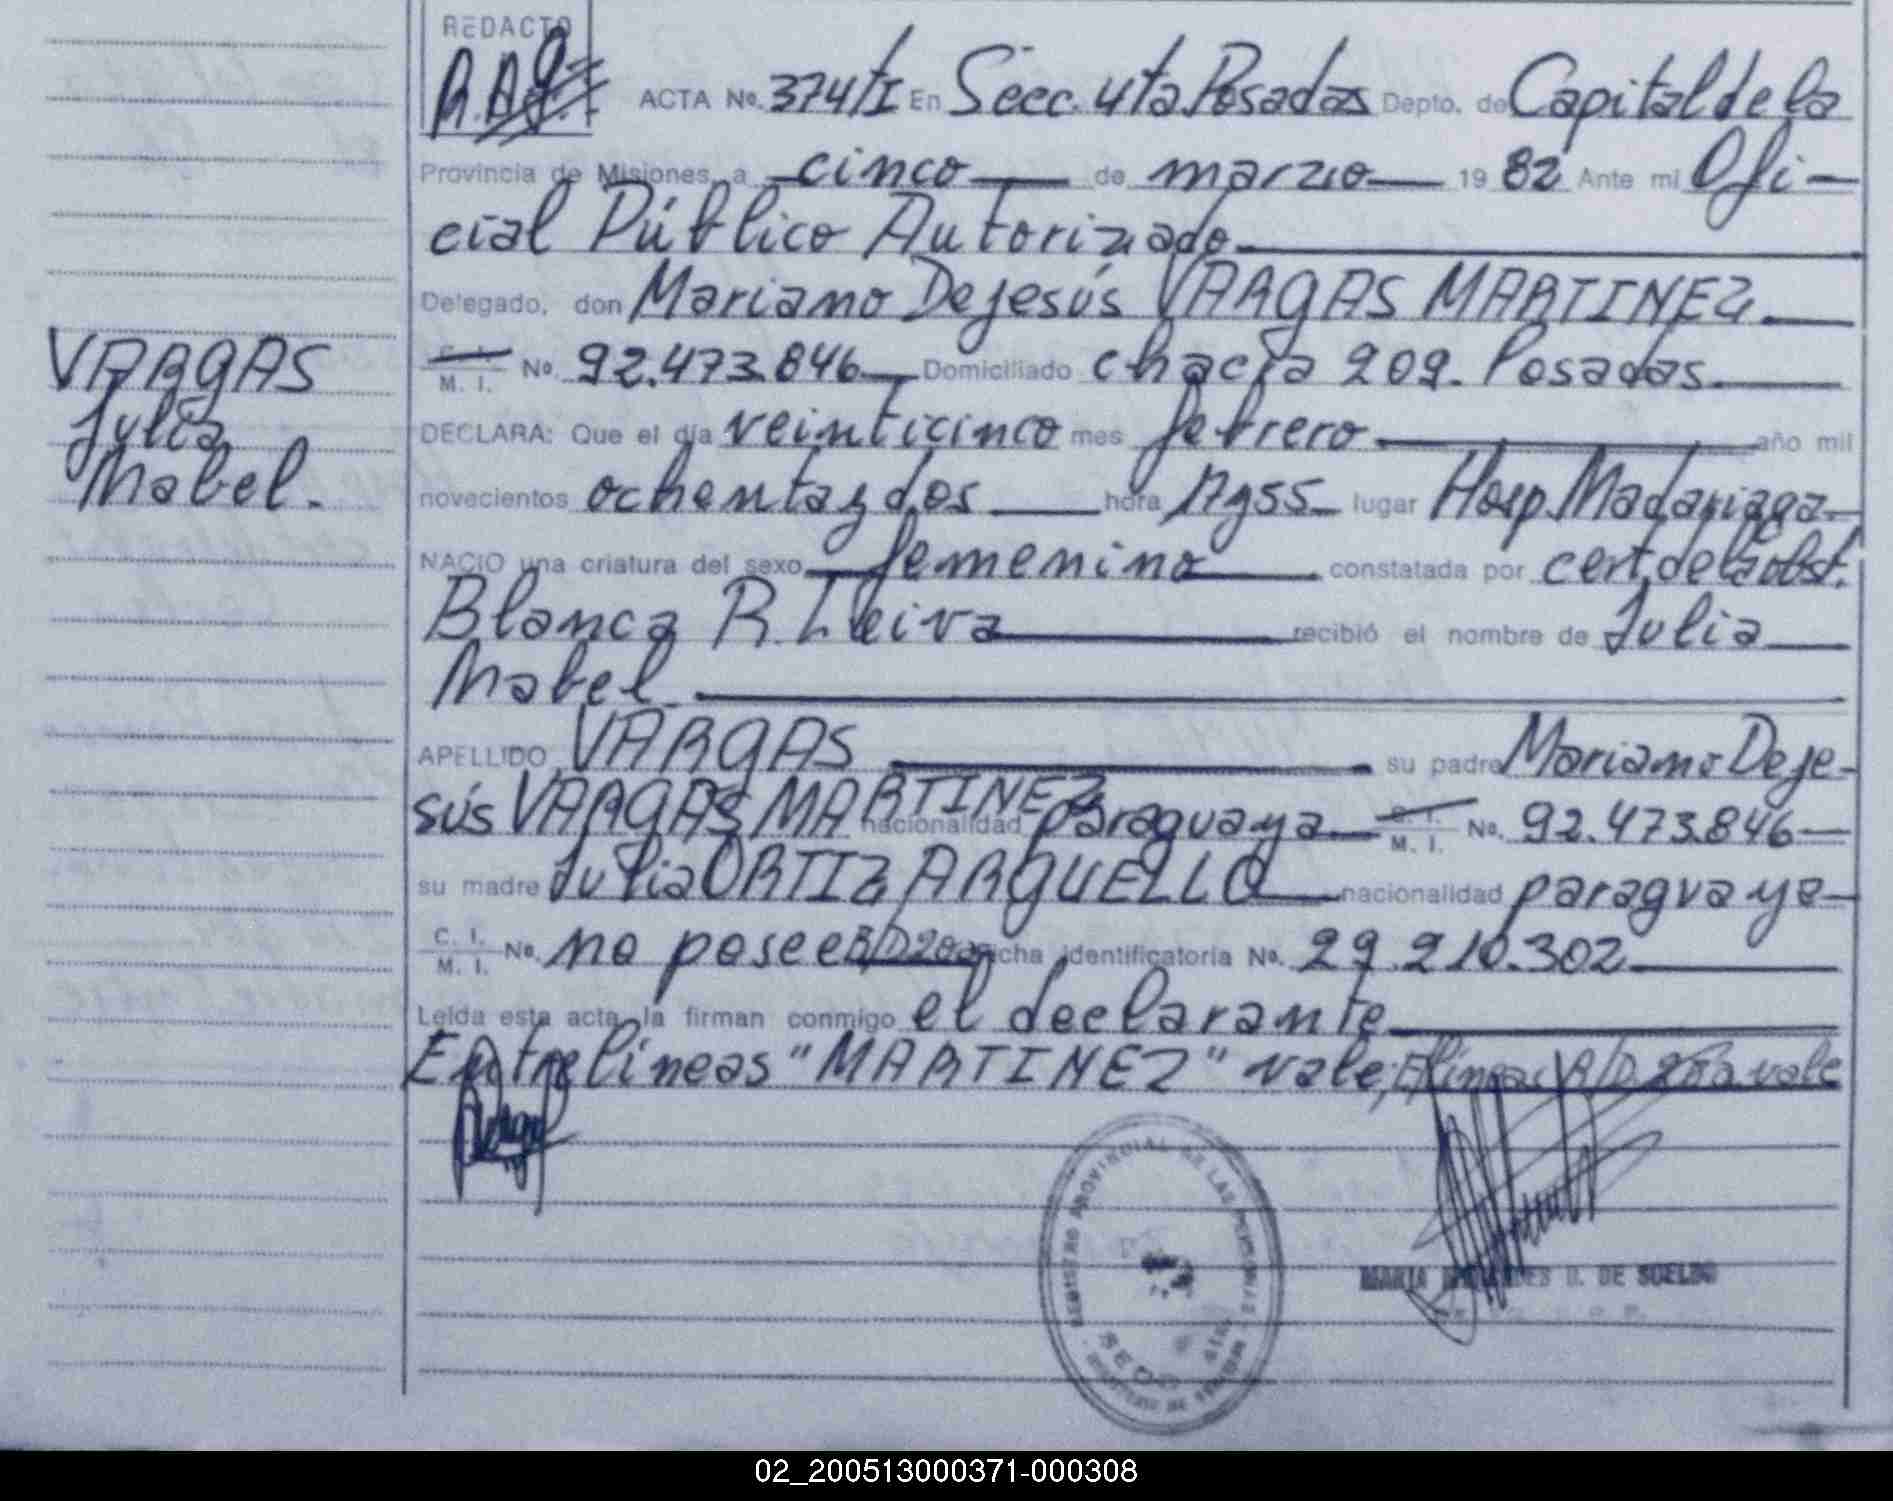 REDACTO
ACTA No. 374/I En Secc. 4ta Posadas Depto. de Capital de la
Provincia de Misiones, a cinco de marzo 19 82 Ante mi Ofi-
cial Público Autorizado
Delegado, don Mariano Dejesús VARGAS MARTINEZ
C. I. M. I. No. 92.473.846 Domiciliado chacra 209. Posadas
DECLARA: Que el día veinticinco mes febrero año mil
novecientos ochenta y dos hora 17y55 lugar Hosp. Madariaga
NACIO una criatura del sexo femenino constatada por cert. de la obst.
Blanca R. Leiva recibió el nombre de Julia
Mabel
APELLIDO VARGAS su padre Mariano Deje-
sús VARGAS MARTINEZ nacionalidad paraguaya C. I. M. I. No. 92.473.846
su madre Julia ORTIZ ARGUELLO nacionalidad paraguaya
C. I. M. I. No. no posee B/D 200 ficha identificatoria No. 29.210.302
Leída esta acta, la firman conmigo el declarante
Entrelíneas "MARTINEZ" vale; E/lineas B/D. 200 vale
VARGAS
Julia
Mabel.
REGISTRO PROVINCIAL DE LAS PERSONAS
MARIA DE SUELDO
02_200513000371-000308